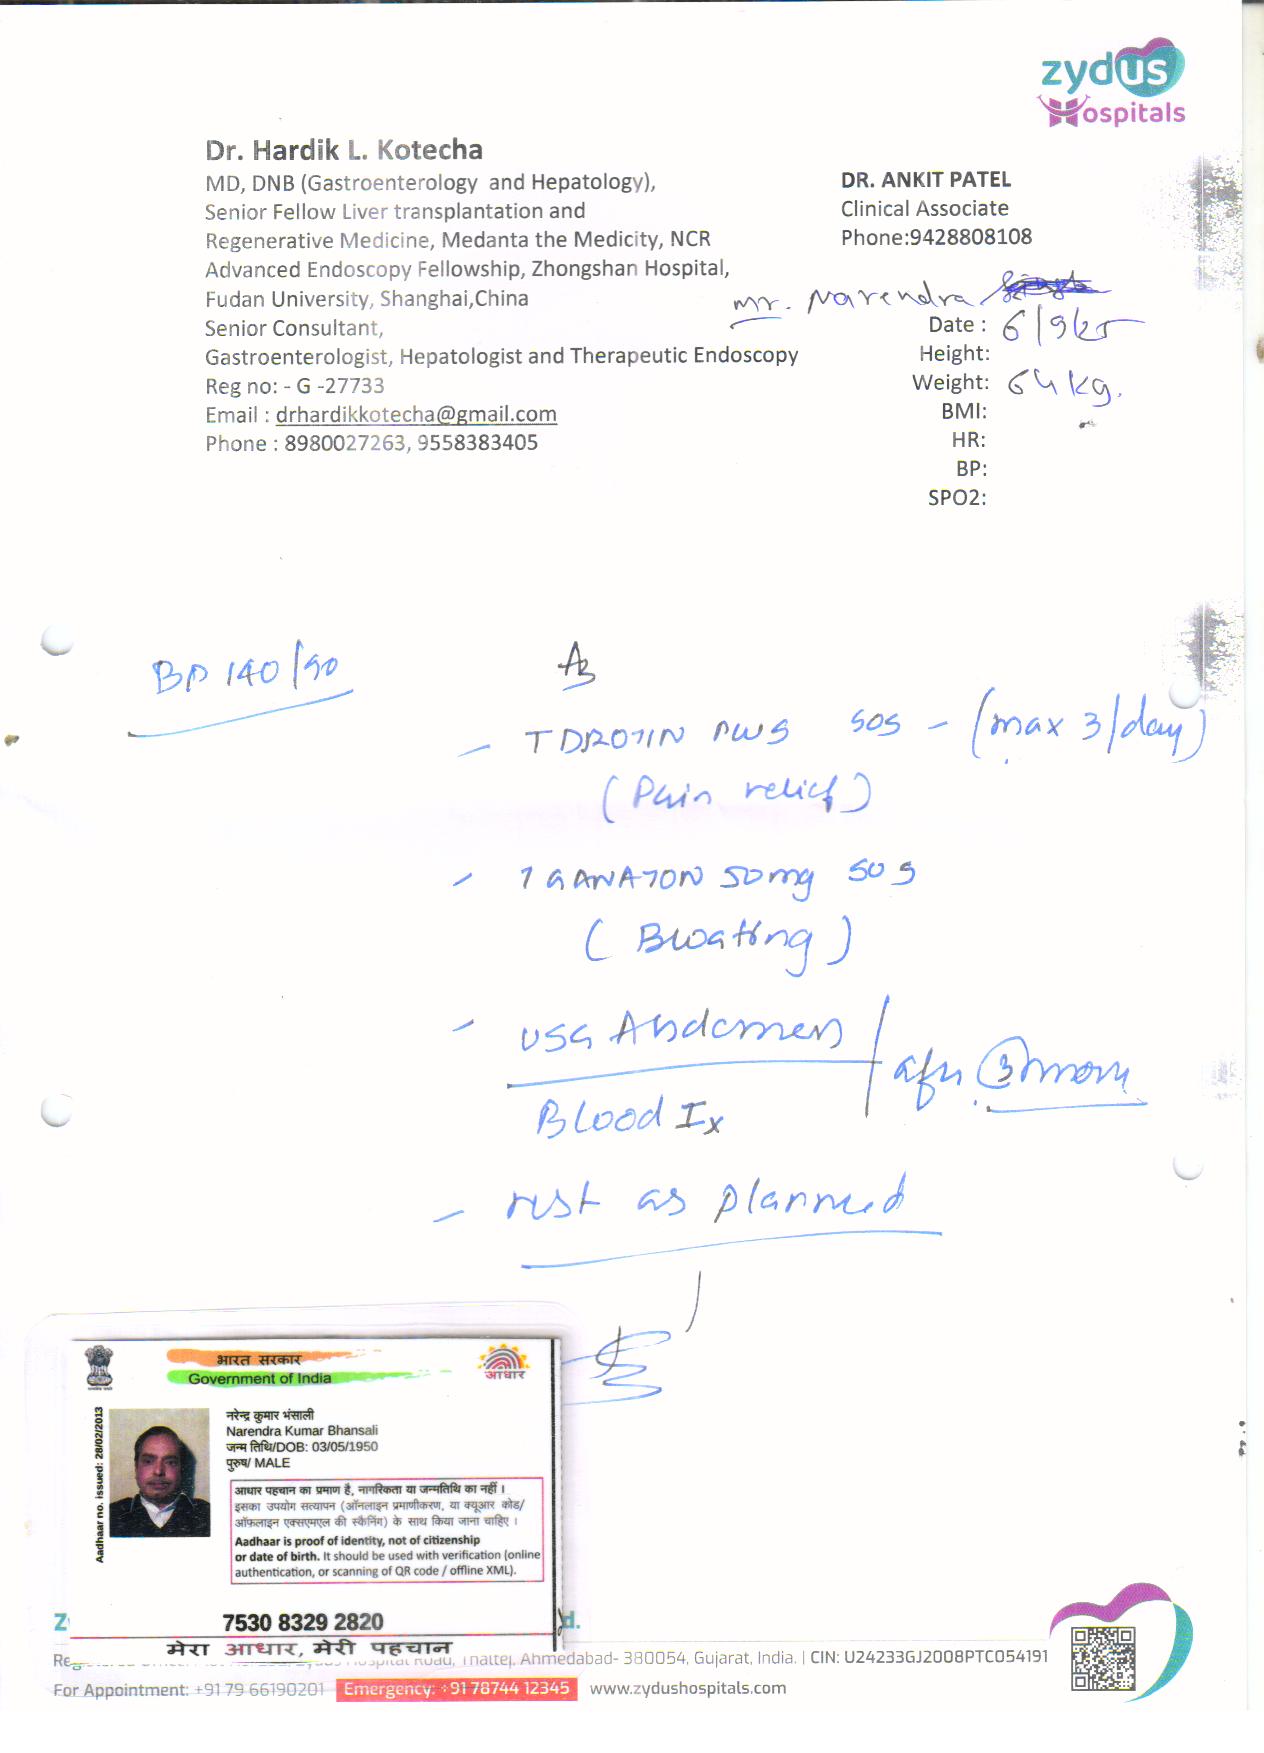 zydus
Hospitals
Dr. Hardik L. Kotecha
MD, DNB (Gastroenterology and Hepatology),
Senior Fellow Liver transplantation and
Regenerative Medicine, Medanta the Medicity, NCR
Advanced Endoscopy Fellowship, Zhongshan Hospital,
Fudan University, Shanghai,China
Senior Consultant,
Gastroenterologist, Hepatologist and Therapeutic Endoscopy
Reg no: - G -27733
Email : drhardikkotecha@gmail.com
Phone : 8980027263, 9558383405
DR. ANKIT PATEL
Clinical Associate
Phone:9428808108
Mr. Narendra
Date : 6/9/25
Height:
Weight: 64 kg.
BMI:
HR:
BP:
SPO2:
BP 140/90
- T DROTIN PLUS SOS - (max 3/day)
(Pain relief)
- T GANATON 50mg SOS
(Bloating)
- USG Abdomen
Blood Ix
after 3 month
- rest as planned
भारत सरकार
Government of India
आधार
Aadhaar no. issued: 28/02/2013
नरेन्द्र कुमार भंसाली
Narendra Kumar Bhansali
जन्म तिथि/DOB: 03/05/1950
पुरुष/ MALE
आधार पहचान का प्रमाण है, नागरिकता या जन्मतिथि का नहीं ।
इसका उपयोग सत्यापन (ऑनलाइन प्रमाणीकरण, या क्यूआर कोड/
ऑफलाइन एक्सएमएल की स्कैनिंग) के साथ किया जाना चाहिए ।
Aadhaar is proof of identity, not of citizenship
or date of birth. It should be used with verification (online
authentication, or scanning of QR code / offline XML).
7530 8329 2820
मेरा आधार, मेरी पहचान
Hospital Road, Thaltej, Ahmedabad- 380054, Gujarat, India. | CIN: U24233GJ2008PTC054191
For Appointment: +91 79 66190201 Emergency: +91 78744 12345 www.zydushospitals.com